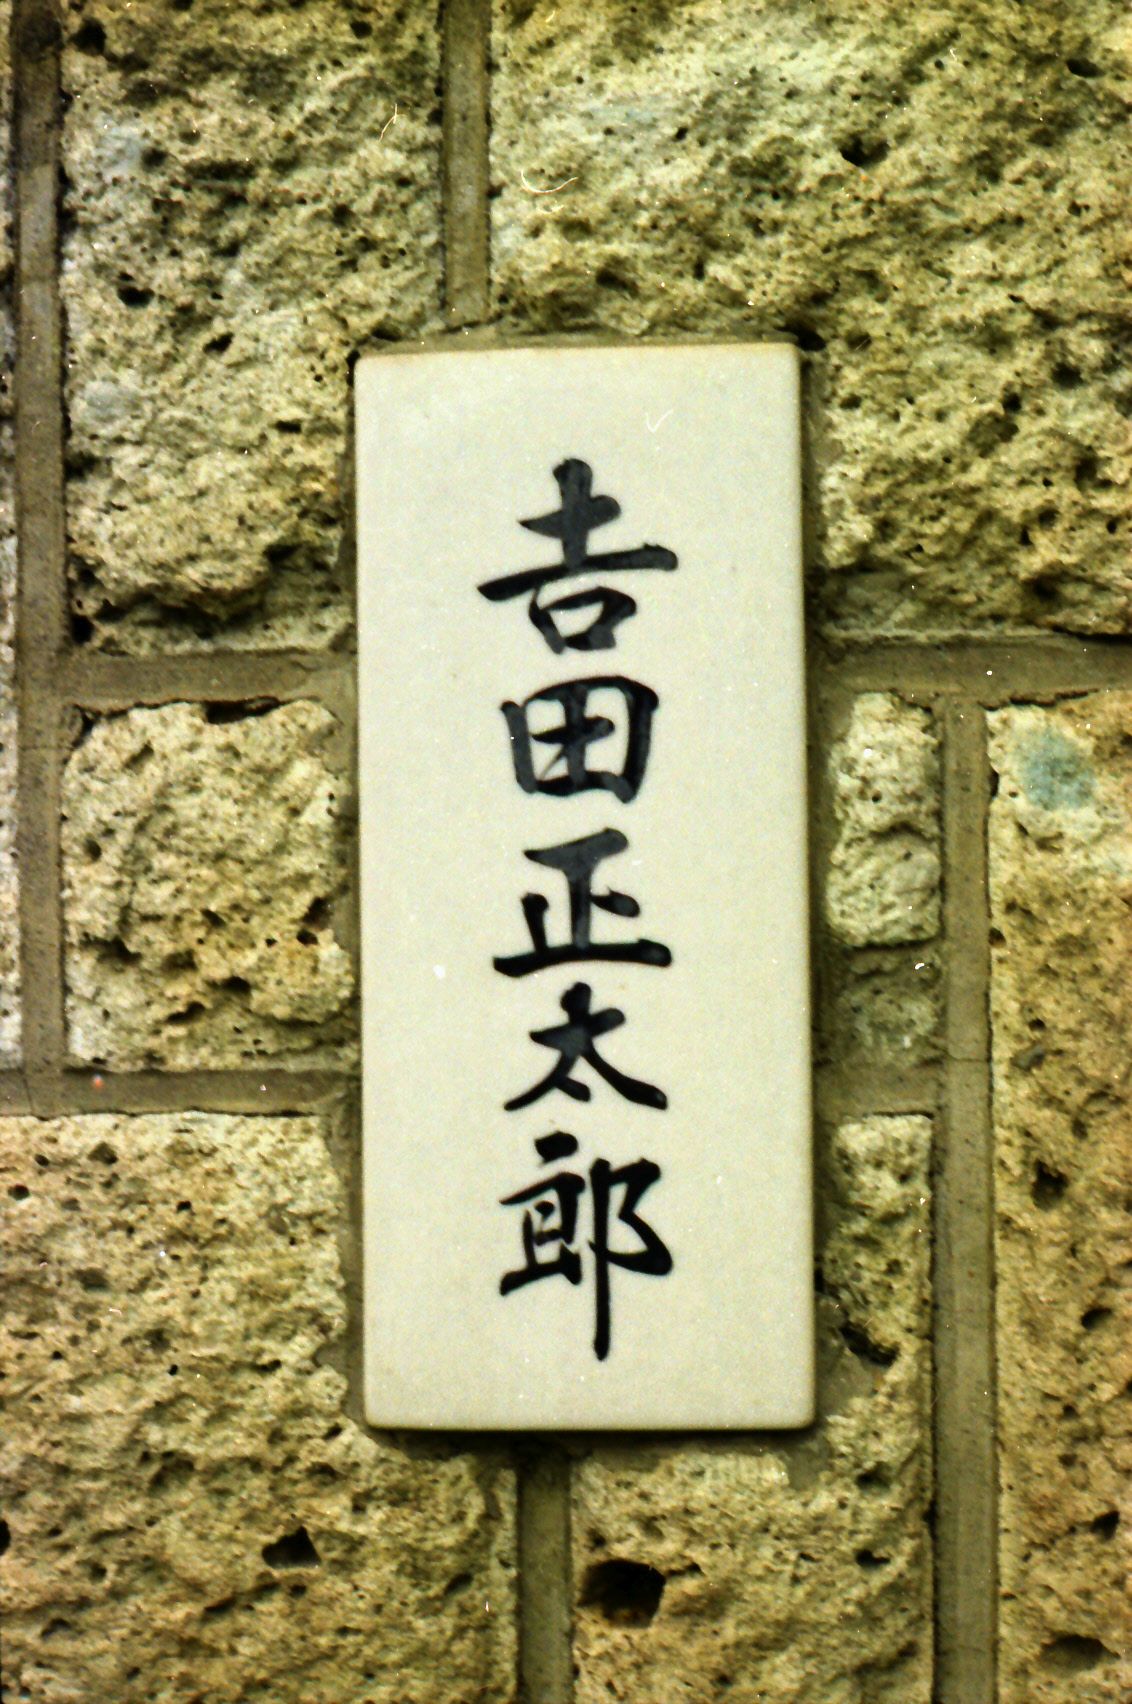 𠮷田正太郎